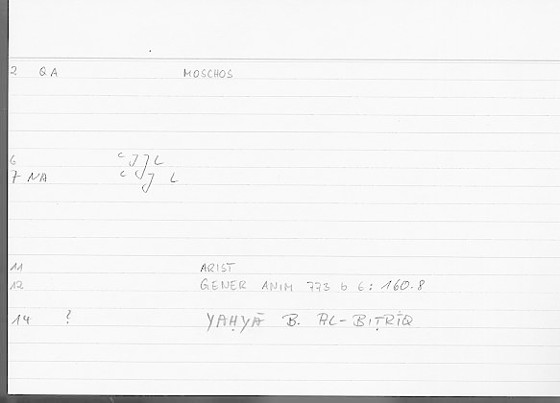 2 QA MOSCHOS
6 ʿJJL
7 NA ʿJL
11 ARIST
12 GENER ANIM 773 b 6: 160.8
14 ? YAḤYĀ B. AL-BIṬRĪQ